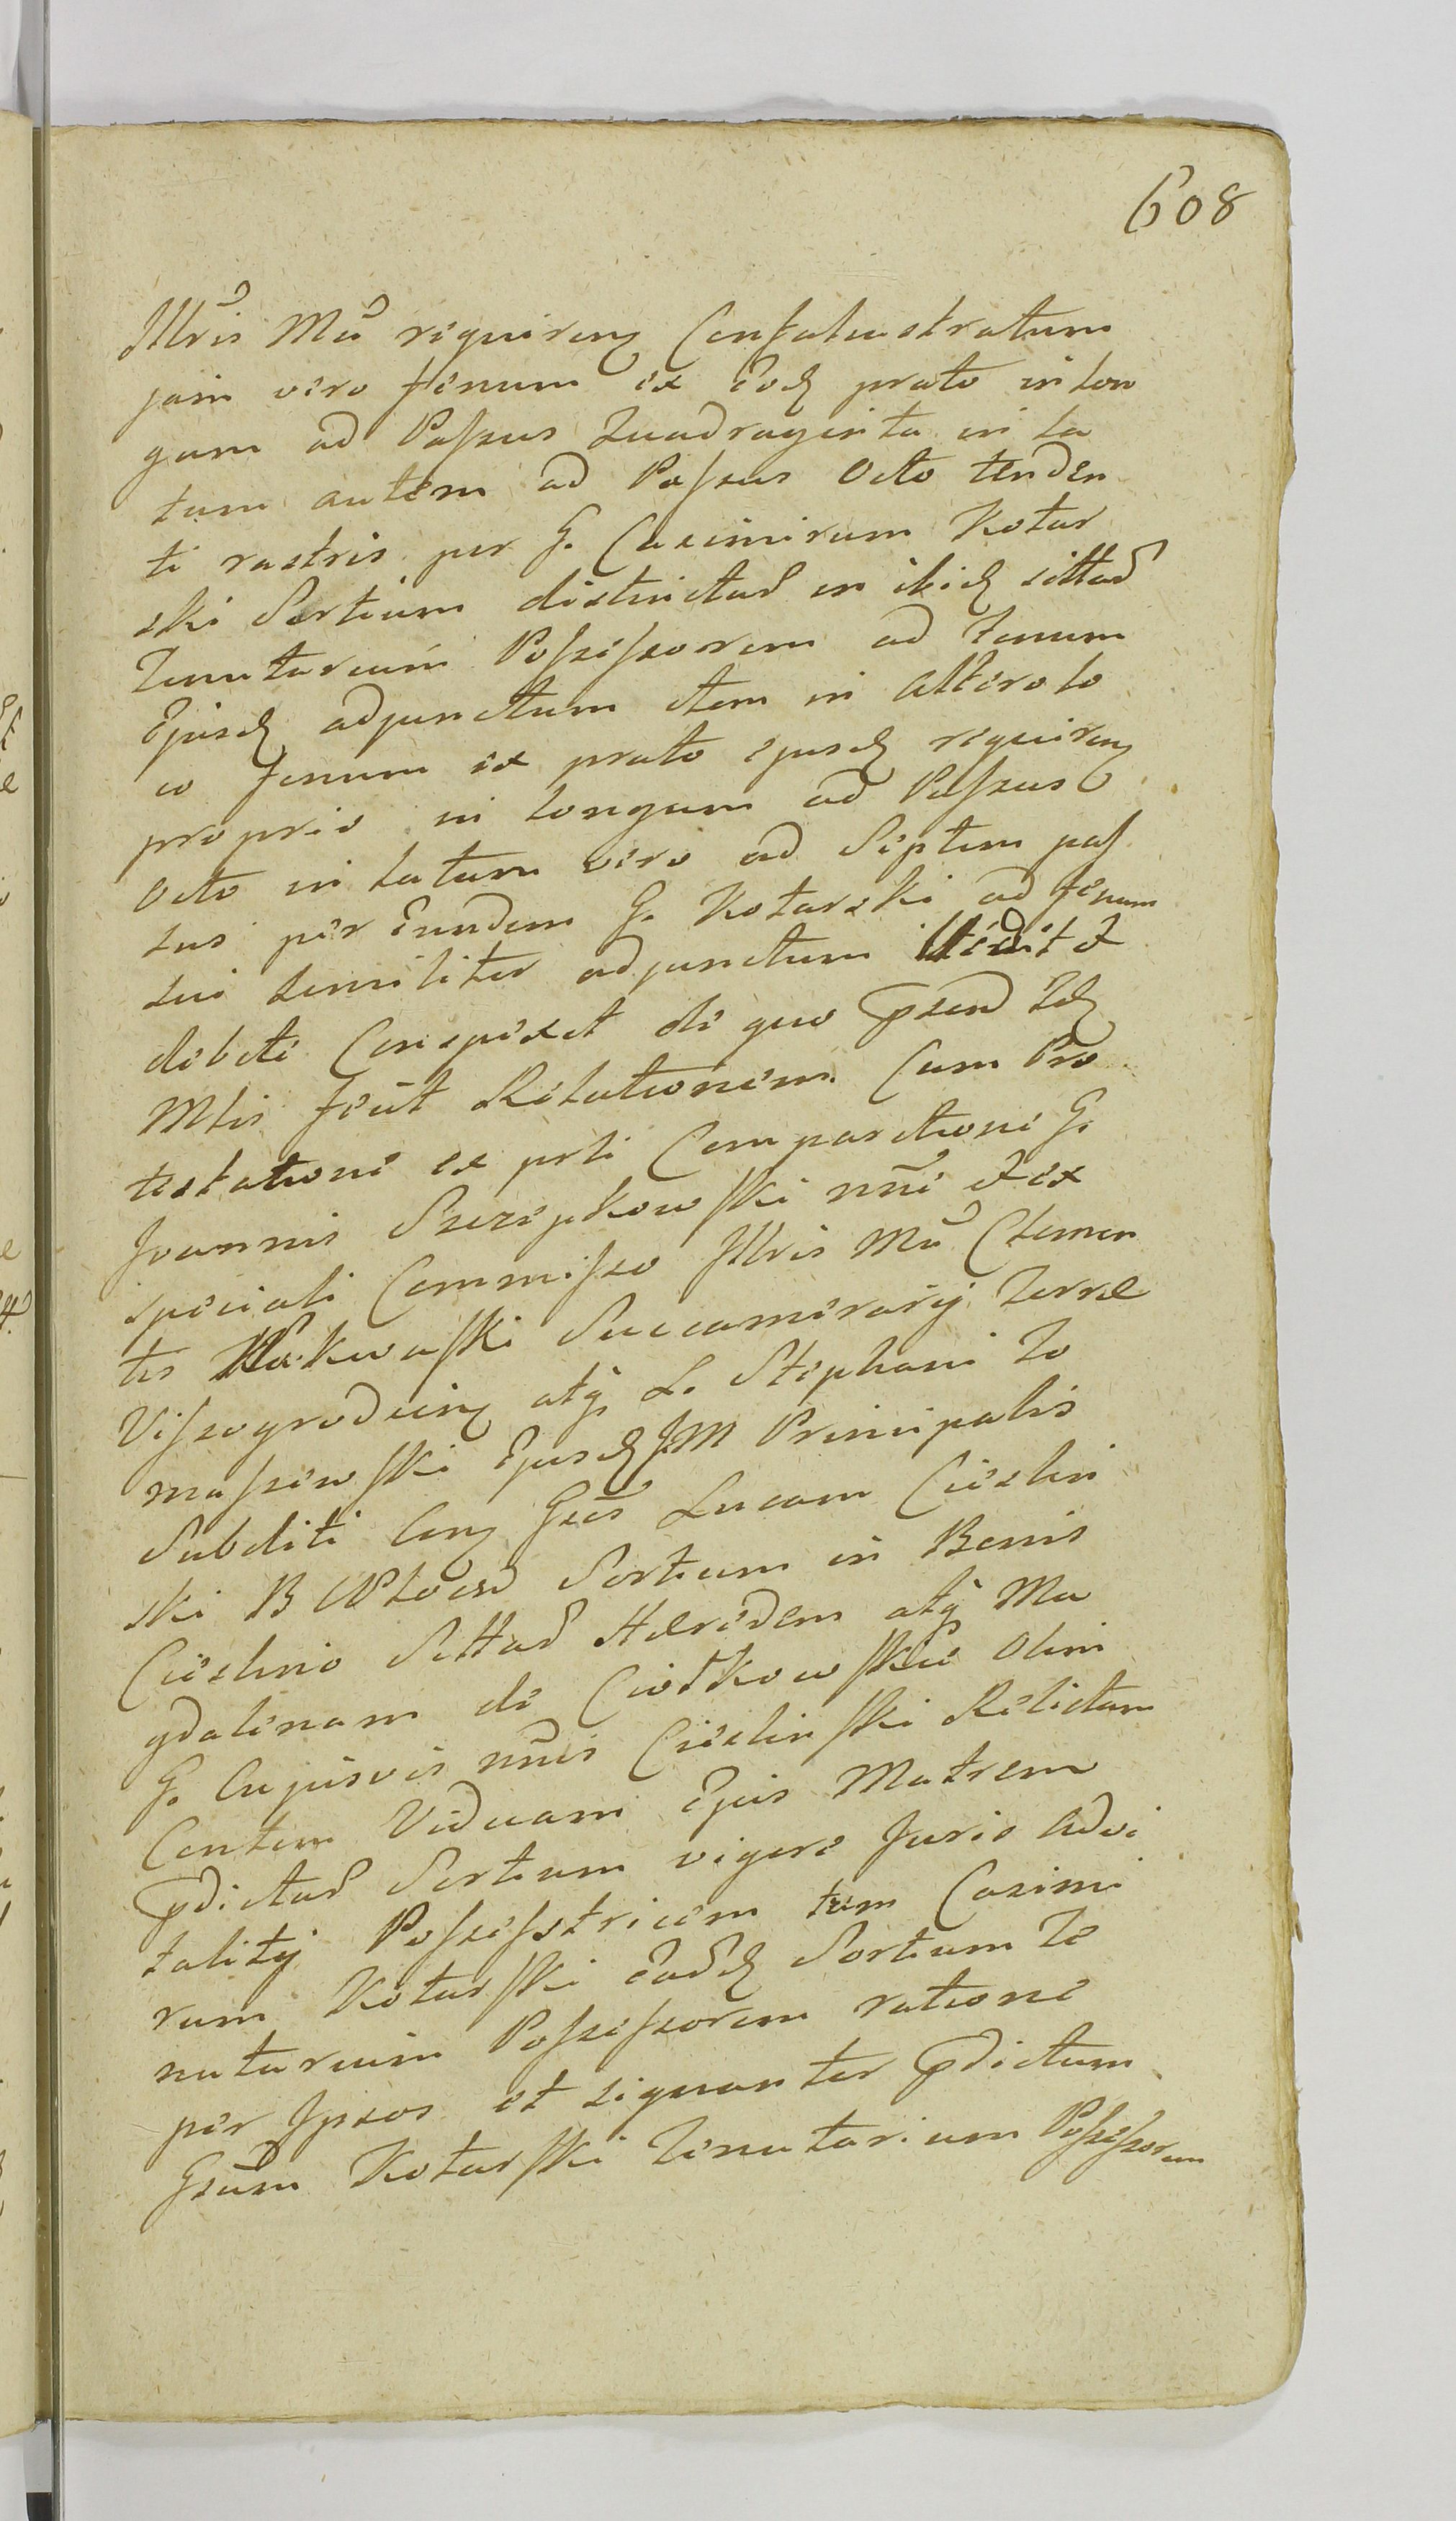 608
Illris Mci requirenς Confalcastratum
jam vero Fenum ex eodς prato in lon
gum ad Passus Quadraginta in la
tum autem ad Passus Octo tenden
ti rastris per G. Casimirum Kotar
ski Sortium distinctaɤ in ibidς sittaɤ
Tenutarium Possessorem ad Fenum
Ejusdς adjunctum Item in altero lo
co Fenum ex prato ejusdς requirenς
proprio in longum ad Passus
Octo in latum vero ad Septem pas
sus per Eundem G. Kotarski ad Fenum
sui similiter adjunctum &
debite Conspexit de quo psend Idς
Mtis fecit Relationem Cum Pro
testatione ex prte Comparitione G.
Joannis Szczepkowski nñe & ex
speciali Commisso Illris Mci Clemen
tis Succamerarij Terræ
Vissogrodienς atq; L. Stephani To
maszewski Ejusdς JM Principalis
Subditi Conς Gsos Lucam Cieslin
ski B Sortium in Bonis
Cieslino Sittaɤ Hæredem atq; Ma
gdalenam de Ciołkowskie Olim
G. Cujusvis nñis Cieslinski Relictam
Contem Viduam Ejus Matrem
pdictaɤ Sortium vigore Juris Advi
talitij Possesstricem tum Casimi
rum Kotarski Eaɤdς Sortium Te
nutarium Possessorem ratione
per Ipsos et signanter pdictum
Gsum Kotarski Tenutarium Possessorem